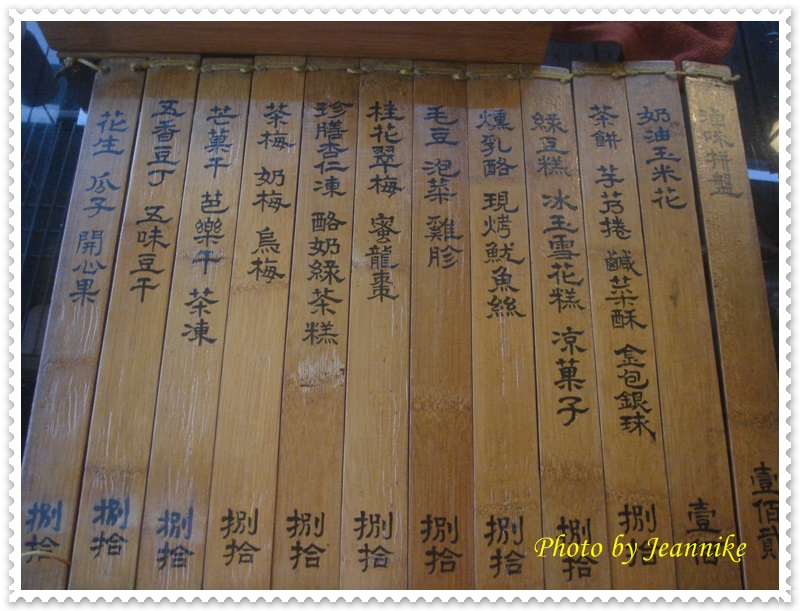 滷味拼盤 壹佰貳
奶油玉米花 壹佰
茶餅 芋芿捲 鹹菜酥 金包銀球 捌拾
綠豆糕 冰玉雪花糕 凉菓子 捌拾
燻乳酪 現烤魷魚絲 捌拾
毛豆 泡菜 雞胗 捌拾
桂花翠梅 蜜龍棗 捌拾
珍膳杏仁凍 酪奶綠茶糕 捌拾
茶梅 奶梅 烏梅 捌拾
芒菓干 芭樂干 茶凍 捌拾
五香豆丁 五味豆干 捌拾
花生 瓜子 開心果 捌拾
Photo by Jeannike